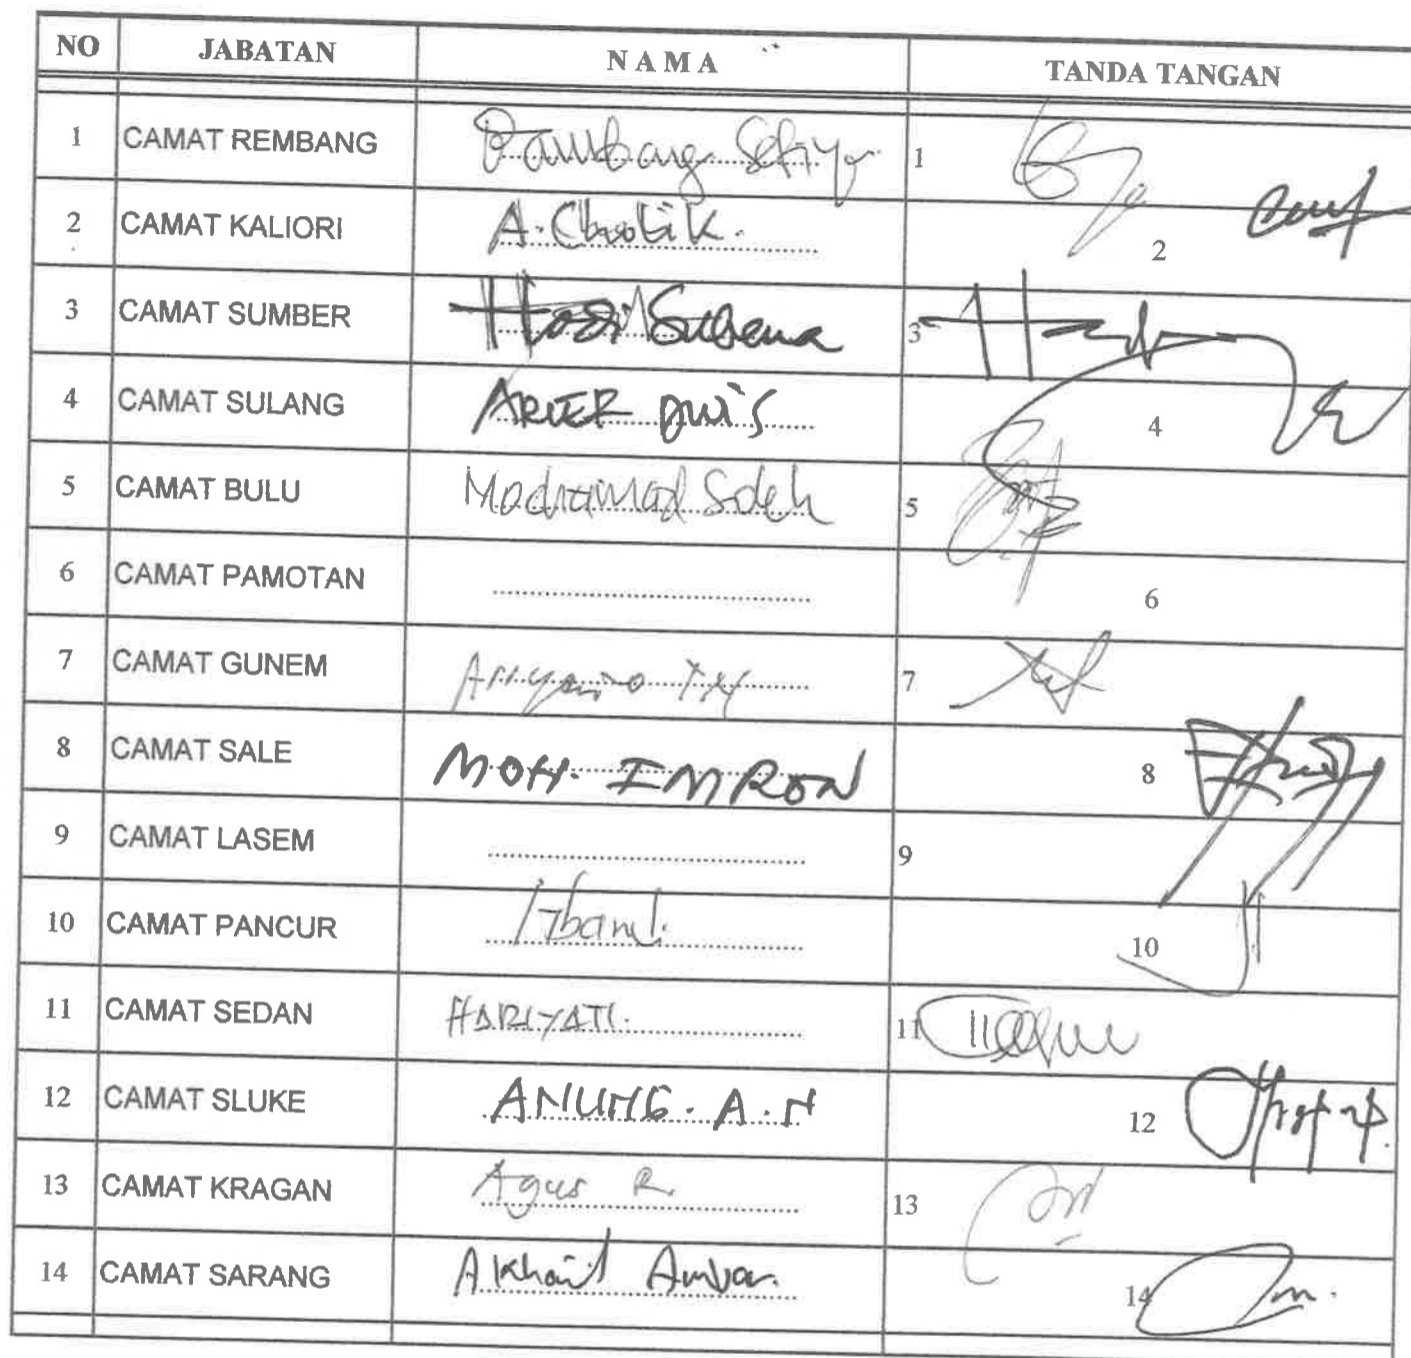 NO JABATAN N A M A TANDA TANGAN
1 CAMAT REMBANG Bambang Setiyo 1
2 CAMAT KALIORI A. Cholik. 2
3 CAMAT SUMBER 3
4 CAMAT SULANG ARIEF DWI S 4
5 CAMAT BULU Mochamad Soleh 5
6 CAMAT PAMOTAN 6
7 CAMAT GUNEM 7
8 CAMAT SALE MOH. IMRON 8
9 CAMAT LASEM 9
10 CAMAT PANCUR 10
11 CAMAT SEDAN HARIYATI. 11
12 CAMAT SLUKE ANUNG. A. N 12
13 CAMAT KRAGAN Agus R. 13
14 CAMAT SARANG 14